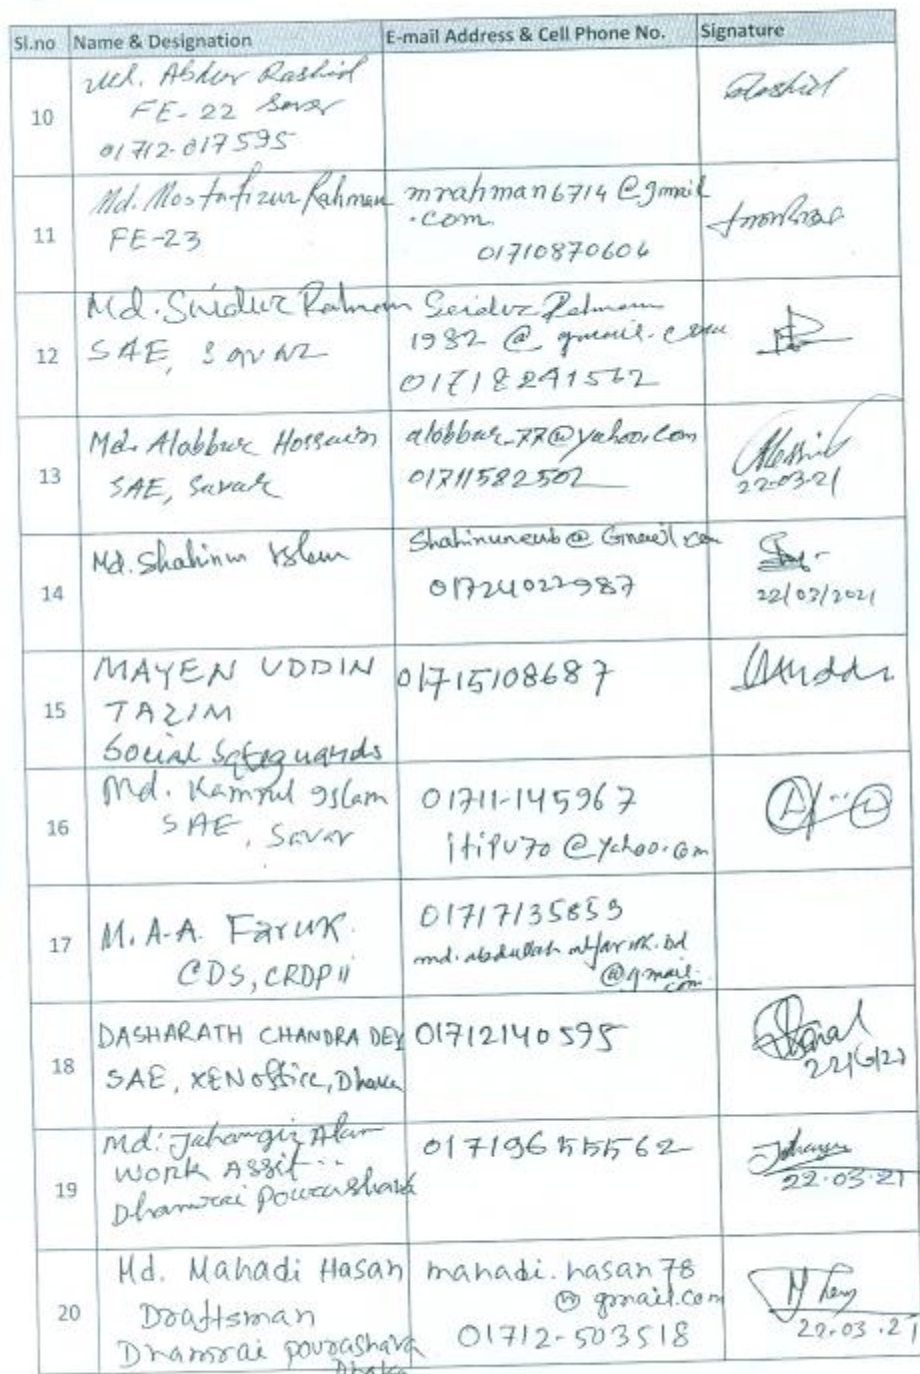 Sl.no Name & Designation E-mail Address & Cell Phone No. Signature
10
Md. Abdur Rashid
FE-22 Savar
01712-017595
Rashid
11
Md. Mostafizur Rahman
FE-23
mrahman6714@gmail
.com.
01710870604
12
Md. Saidur Rahman
SAE, Savar
Saidur Rahman
1982@gmail.com
01718291572
13
Md. Alabbur Hossain
SAE, Savar
alobbur_77@yahoo.com
01711582502
22-03-21
14
Md. Shahinur Islam
Shahinureub@Gmail.com
01724022987
22/03/2021
15
MAYEN UDDIN
TAZIM
Social Safeguards
01715108687
16
Md. Kamrul Islam
SAE, Savar
01711-145967
itipu70@yahoo.com
17
M.A-A. Faruk.
CDS, CRDP ii
01717135853
md.abdullah alfaruk.bd
@gmail.
com
18
DASHARATH CHANDRA DEY
SAE, XEN office, Dhaka
01712140595
19
Md: Jahangir Alam
Work Assit..
Dhamrai Pourashava
01719655562
Jahangir
22.03.21
20
Md. Mahadi Hasan
Draftsman
Dhamrai pourashava
Dhaka
mahadi.hasan78
@gmail.com
01712-503518
22.03.21